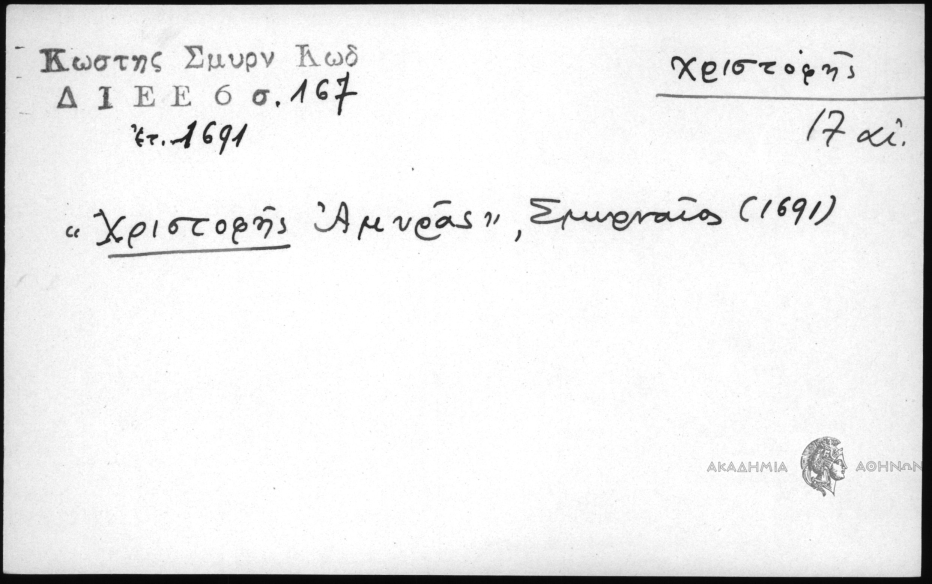 Κωστης Σμυρν Κωδ
Δ Ι Ε Ε 6 σ. 167
ἔτ. 1691
Χριστοφῆς
17 αἰ.
“Χριστοφῆς Ἀμυρᾶς”, Σμυρναῖος (1691)
ΑΚΑΔΗΜΙΑ ΑΘΗΝΩΝ